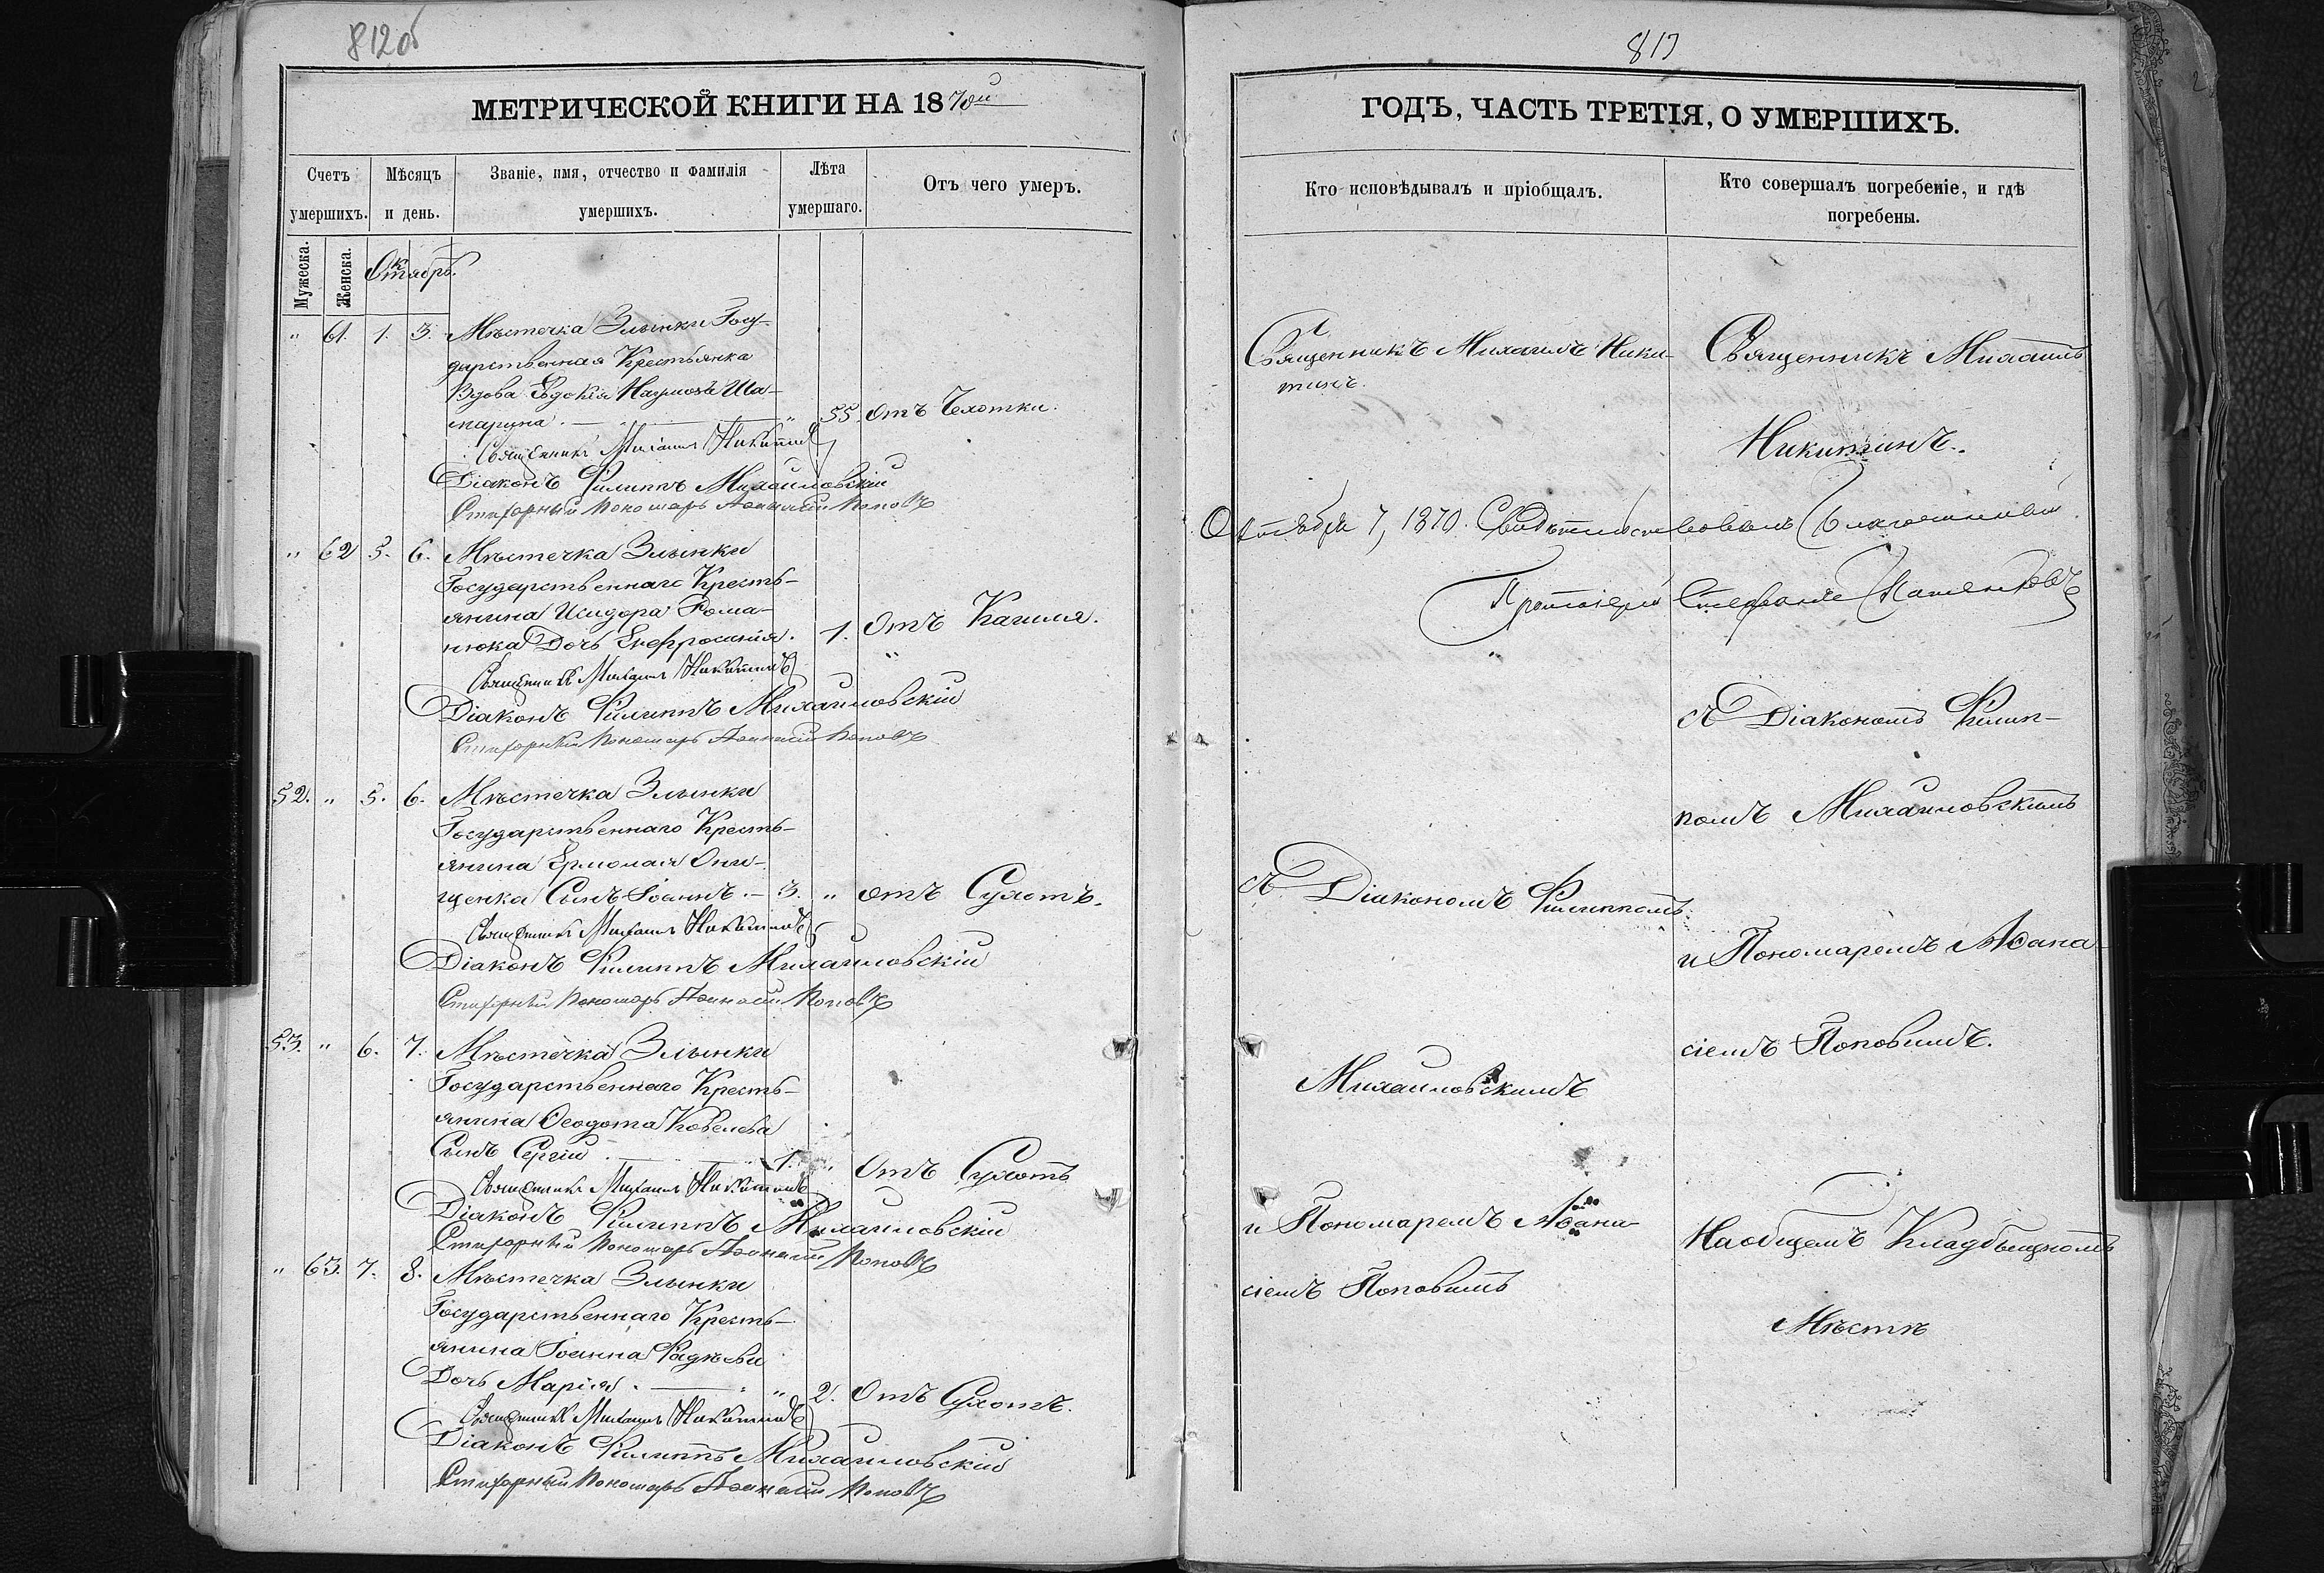 812об
МЕТРИЧЕСКОЙ КНИГИ НА 1870й
Счетъ умершихъ.
Мѣсяцъ и день.
Званіе, имя, отчество и фамилія умершихъ.
Лѣта умершаго.
Отъ чего умеръ.
Мужеска.
Женска.
Октябрь.
" 61. 1. 3. Мѣстечка Злынки Госу-
дарственная Крестьянка
Вдова Евдокія Наумова Ша-
марина. — " 55. отъ Чахотки.
Священникъ Михаилъ Никитинъ
Діаконъ Филиппъ Михайловскій
Стихарный Пономарь Аѳанасій Поповъ
" 62 5. 6. Мѣстечка Злынки
Государственнаго Кресть-
янина Исидора Рома-
нюка Дочь Евфросинія. 1. Отъ Кашля.
Священникъ Михаилъ Никитинъ
Діаконъ Филиппъ Михайловскій
Стихарный Пономарь Аѳанасій Поповъ
52. " 5. 6. Мѣстечка Злынки
Государственнаго Кресть-
янина Ермолая Они-
щенка Сынъ Іоаннъ. — 3. " отъ Сухотъ.
Священникъ Михаилъ Никитинъ
Діаконъ Филиппъ Михайловскій
Стихарный Пономарь Аѳанасій Поповъ
53. " 6. 7. Мѣстечка Злынки
Государственнаго Кресть-
янина Ѳеодота Ковелева
Сынъ Сергій. — 1. " Отъ Сухотъ
Священникъ Михаилъ Никитинъ
Діаконъ Филиппъ Михайловскій
Стихарный Пономарь Аѳанасій Поповъ
" 63. 7. 8. Мѣстечка Злынки
Государственнаго Кресть-
янина Іоанна
Дочь Марія. — " 2. Отъ Сухотъ.
Священникъ Михаилъ Никитинъ
Діаконъ Филиппъ Михайловскій
Стихарный Пономарь Аѳанасій Поповъ
813
ГОДЪ, ЧАСТЬ ТРЕТІЯ, О УМЕРШИХЪ.
Кто исповѣдывалъ и пріобщалъ.
Кто совершалъ погребеніе, и гдѣ погребены.
Священникъ Михаилъ Ники-
тинъ.
Священникъ Михаилъ
Никитинъ.
Октября 7, 1870. Свидѣтельствовалъ Благочинный
Протоіерей Стефанъ
съ Діакономъ Филип-
помъ Михайловскимъ
и Пономаремъ Аѳана-
сіемъ Поповымъ.
На общемъ Кладбищномъ
Мѣстѣ
съ Діакономъ Филиппомъ
Михайловскимъ
и Пономаремъ Аѳана-
сіемъ Поповымъ